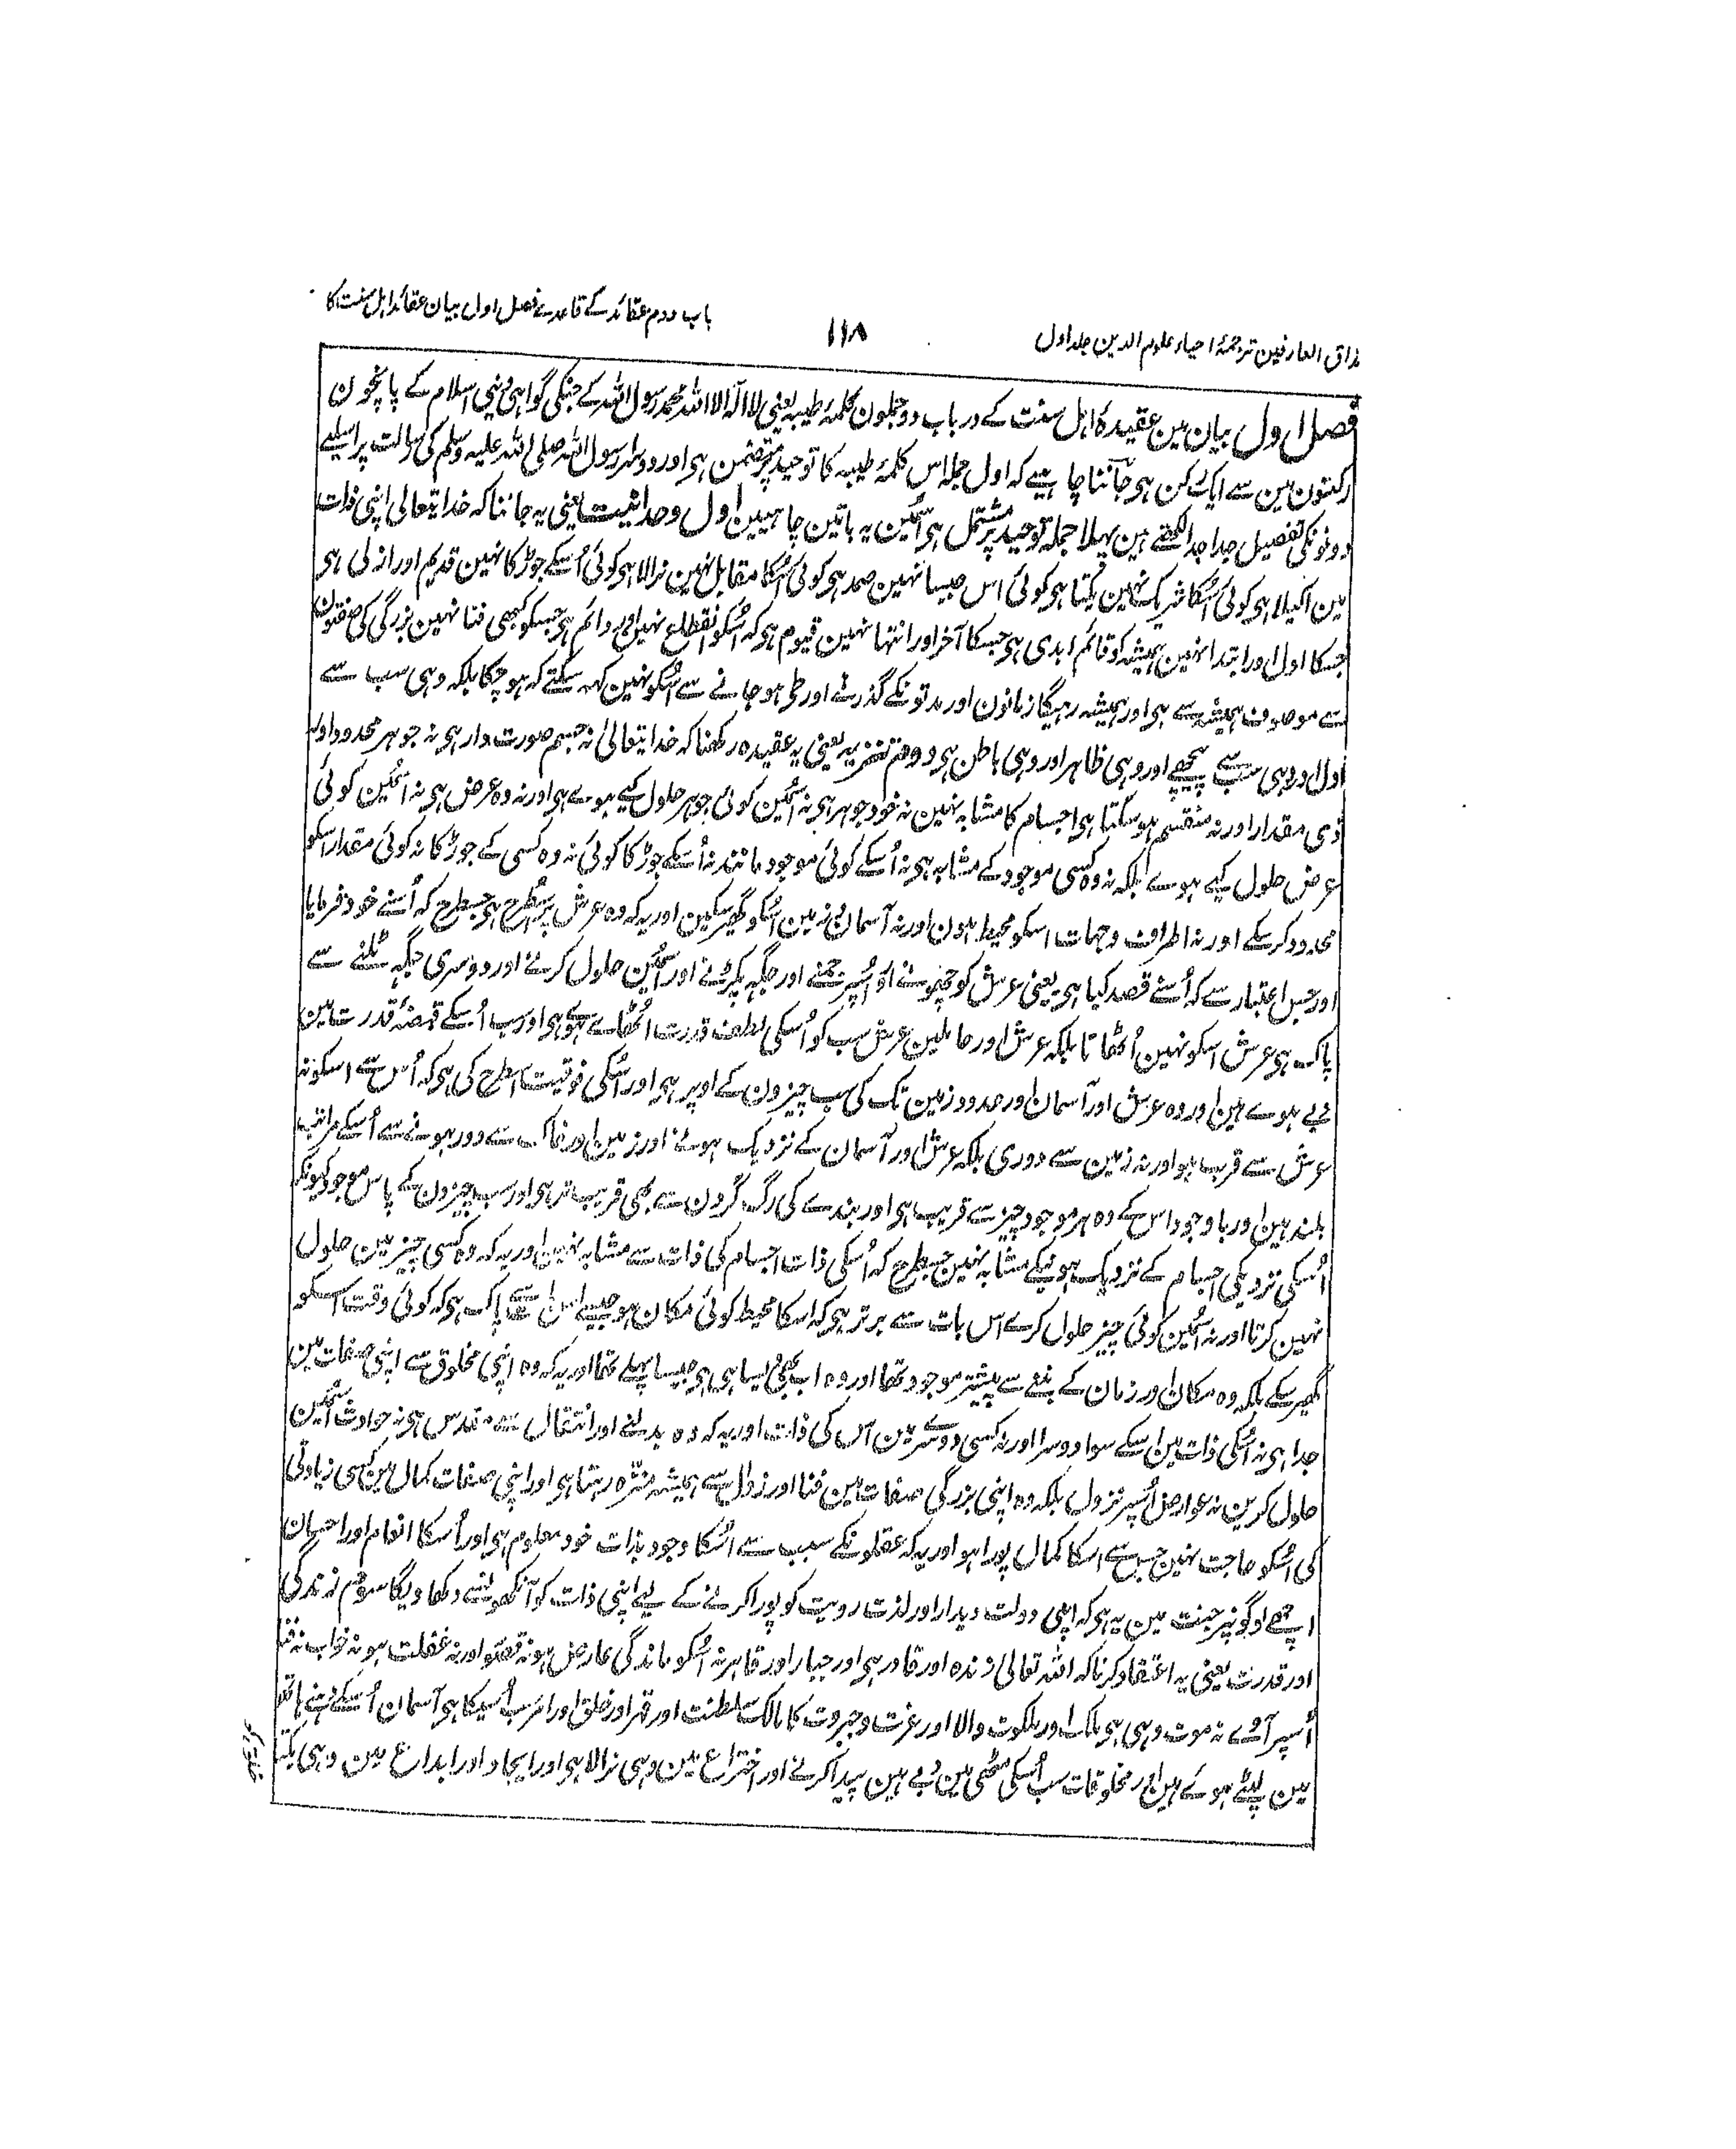 مذاق العارفین ترجمۂ احیاء علوم الدین جلد اول
۱۱۸
باب دوم عقائد کے قاعدے فصل اول بیان عقائد اہل سنت کا
فصل اول بیان مین عقیدۂ اہل سنت کے در باب دو جملون کلمۂ طیبہ یعنی لا الہ الا اللہ محمد رسول اللہ کے جنکی گواہی دینی اسلام کے پانچون
رکنون مین سے ایک رکن ہی جاننا چاہیے کہ اول جملہ اس کلمۂ طیبہ کا توحید پر متضمن ہی اور دوسرا رسول اللہ صلی اللہ علیہ وسلم کی رسالت پر اسلیے
دونونکی تفصیل جدا جدا لکھتے ہین پہلا جملہ توحید پر مشتمل ہی اسمین یہ باتین چاہییین اول وحدانیت یعنی یہ جاننا کہ خدا یتعالی اپنی ذات
مین اکیلا ہی کوئی اسکا شریک نہین یکتا ہی کوئی اس جیسا نہین صمد ہی کوئی اسکا مقابل نہین نرالا ہی کوئی اُسکے جوڑ کا نہین قدیم اور ازلی ہی
جسکا اول اور ابتدا نہین ہمیشہ کو قائم ابدی ہی جسکا آخر اور انتہا نہین قیوم ہی کہ اُسکو انقطاع نہین اور دائم ہی جسکو کبھی فنا نہین بزرگی کی صفتون
سے موصوف ہمیشہ سے ہی اور ہمیشہ رہیگا زمانون اور مدتونکے گذرنے اور طی ہو جانے سے اُسکو نہین کہہ سکتے کہ ہو چکا بلکہ وہی سب سے
اول اور وہی سب سے پیچھے اور وہی ظاہر اور وہی باطن ہی دوم تنزیہ یعنی یہ عقیدہ رکھنا کہ خدا یتعالیٰ نہ جسم صورت دار ہی نہ جوہر محدود اور
ذی مقدار اور نہ منقسم ہو سکتا ہی اجسام کا مشابہ نہین نہ خود جوہر ہی نہ اسمین کوئی جوہر حلول کیے ہوے ہی اور نہ وہ عرض ہی نہ اسمین کوئی
عرض حلول کیے ہوے بلکہ نہ وہ کسی موجود کے مشابہ ہی نہ اُسکے کوئی موجود مانند نہ اُسکے جوڑ کا کوئی نہ وہ کسی کے جوڑ کا نہ کوئی مقدار اسکو
محدود کر سکے اور نہ اطراف و جہات اسکو محیط ہون اور نہ آسمان و زمین اُسکو گھیر سکین اور یہ کہ وہ عرش پر اُسطرح ہی جسطرح کہ اُسنے خود فرمایا
اور جس اعتبار سے کہ اُسنے قصد کیا ہی یعنی عرش کو چھونے اور اُسپر جمنے اور جگہ پکڑنے اور اسمین حلول کرنے اور دوسری جگہ ٹلنے سے
پاک ہی عرش اسکو نہین اُٹھاتا بلکہ عرش اور حاملین عرش سب کو اُسکی لطف قدرت اٹھاے ہوے ہی اور سب اُسکے قبضۂ قدرت مین
دبے ہوے ہین اور وہ عرش اور آسمان اور حدود زمین تک کی سب چیزون کے اوپر ہی اور اسکی فوقیت اسطرح کی ہی کہ اُس سے اسکو نہ
عرش سے قرب ہو اور نہ زمین سے دوری بلکہ عرش اور آسمان کے نزدیک ہونے اور زمین اور خاک سے دور ہونے سے اُسکے مراتب
بلند ہین اور باوجود اس کے وہ ہر موجود چیز سے قریب ہی اور بندے کی رگ گردن سے بھی قریب تر ہی اور سب چیزون کے پاس موجود کیونکہ
اُسکی نزدیکی اجسام کے نزدیک ہونیکے مشابہ نہین جسطرح کہ اُسکی ذات اجسام کی ذات سے مشابہ نہین اور یہ کہ وہ کسی چیز مین حلول
نہین کرتا اور نہ اسمین کوئی چیز حلول کرے اس بات سے برتر ہی کہ اسکا محیط کوئی مکان ہو جیسے اس سے پاک ہی کہ کوئی وقت اسکو
گھیر سکے بلکہ وہ مکان اور زمان کے بننے سے پیشتر موجود تھا اور وہ اب بھی ایسا ہی ہی جیسا پہلے تھا اور یہ کہ وہ اپنی مخلوق سے اپنی صفات مین
جدا ہی نہ اُسکی ذات مین اسکے سوا دوسرا اور نہ کسی دوسرے مین اس کی ذات اور یہ کہ وہ بدلنے اور انتقال سے مقدس ہی نہ حوادث اسمین
حلول کرین نہ عوارض اُسپر نزول بلکہ وہ اپنی بزرگی صفات مین فنا اور زوال سے ہمیشہ منزہ رہتا ہی اور اپنی صفات کمال مین کسی زیادتی
کی اُسکو حاجت نہین جس سے اسکا کمال پورا ہو اور یہ کہ عقلونکے سبب سے اُسکا وجود بذات خود معلوم ہی اور اُسکا انعام اور احسان
اچھے لوگونپر جنت مین یہ ہی کہ اپنی دولت دیدار اور لذت رویت کو پورا کرنے کے لیے اپنی ذات کو آنکھونسے دکھا دیگا سوم زندگی
اور قدرت یعنی یہ اعتقاد کرنا کہ اللہ تعالیٰ زندہ اور قادر ہی اور جبار اور قاہر نہ اُسکو ماندگی عارض ہو نہ قصور اور نہ غفلت ہو نہ خواب نہ فنا
اُسپر آوے نہ موت وہی ہی ملک اور ملکوت والا اور عزت و جبروت کا مالک سلطنت اور قہر اور خلق اور امر سب اُسیکا ہی آسمان اُسکے دہنے ہاتھ
مین لپٹے ہوئے ہین اور مخلوقات سب اُسکی مٹھی مین دبے ہین پیدا کرنے اور اختراع مین وہی نرالا ہی اور ایجاد اور ابداع مین وہی یکتا